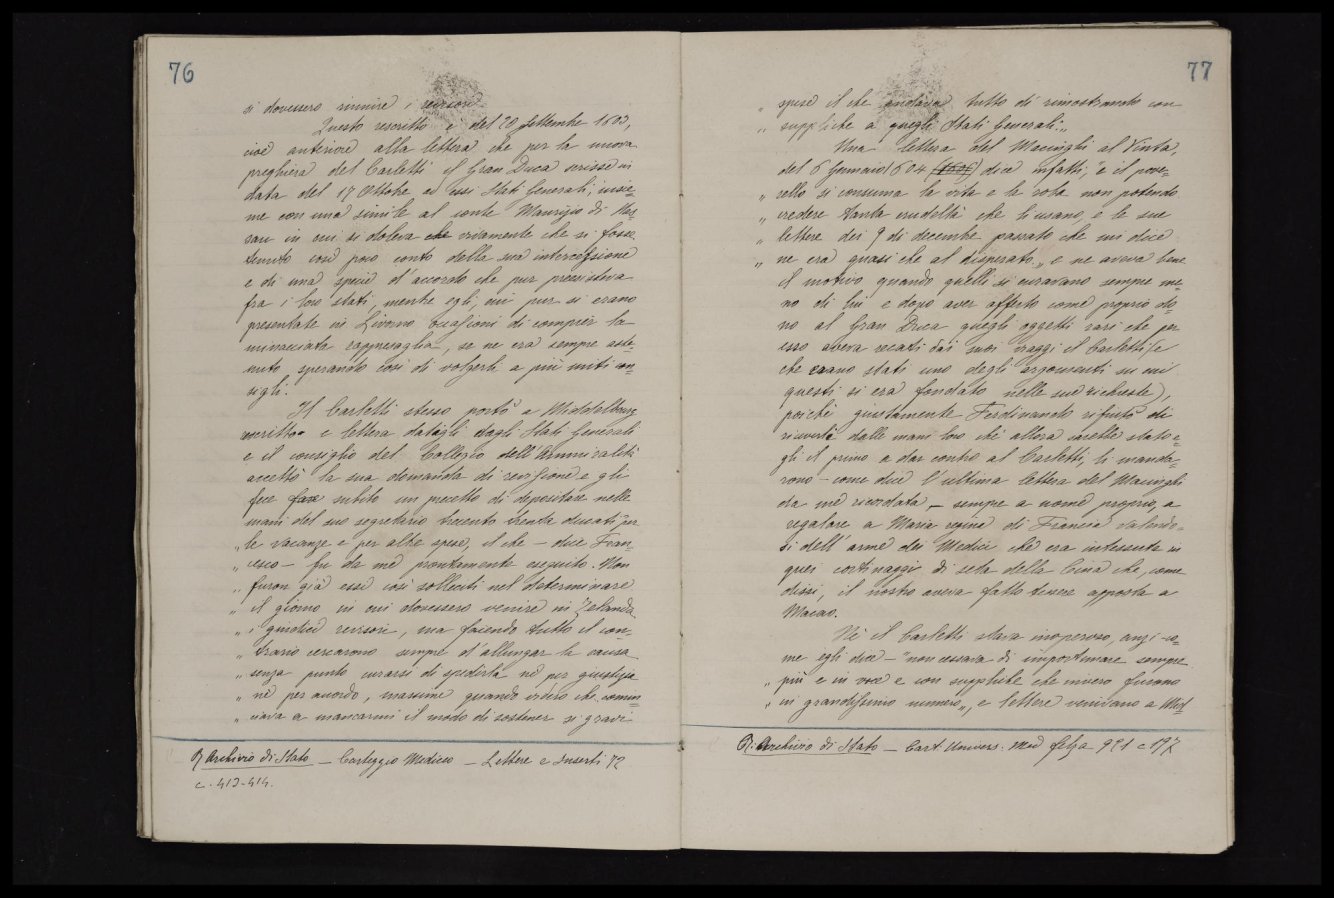 76
si dovessero riunire i revisori.
Questo rescritto è del 20 Settembre 1603,
cioè anteriore alla lettera che per la nuova
preghiera del Carletti il Gran Duca scrisse in
data del 17 Ottobre ad essi Stati Generali, insie=
me con una simile al conte Maurizio di Nas
sau in cui si doleva che vivamente che si fosse
tenuto così poco conto della sua intercessione
e di una specie d'accordo che pur preesisteva
fra i loro stati, mentre egli, cui pur si erano
presentate in Livorno occasioni di compier la
minacciata rappresaglia, se ne era sempre aste=
nuto sperando così di volgerli a più miti con=
sigli.
Il Carletti stesso portò a Middelbourg
rescritto e lettera datagli dagli Stati Generali
e il consiglio del Collegio dell'Ammiralità
accettò la sua domanda di revisione e gli
fece fare subito un precetto di depositare nelle
mani del suo segretario trecento trenta ducati "per
„ le vacanze e per altre spese, il che – dice Fran=
„ cesco – fu da me prontamente eseguito. Non
„ furon già essi così solleciti nel determinare
„ il giorno in cui dovessero venire in Zelanda
„ i giudici revisori, ma facendo tutto il con=
„ trario cercorono sempre d'allungar la causa
„ senza punto curarsi di spedirla nè per giustizia
„ nè per accordo, massime quando videro che comin
„ ciava a mancarmi il modo di sostener sì gravi
R. Archivio di Stato – Carteggio Mediceo – Lettere e Inserti 72
c. 413-414.
77
„ spese il che andava tutto dì rimostrando con
„ suppliche a quegli Stati Generali.„
Una lettera del Macinghi al Vinta,
del 6 Gennaio 1604 (1606) dice infatti, "e il pove=
„ rello si consuma la vita e la roba non potendo
„ credere tanta crudeltà che li usano, e le sue
„ lettere dei 9 di decembre passato che mi dice
„ ne era quasi che al disperato„ e ne aveva bene
il motivo quando quelli si curavano sempre me=
no di lui e dopo aver offerto come proprio do=
no al Gran Duca quegli oggetti rari che per
esso aveva recati dai suoi viaggi il Carletti (e
che erano stati uno degli argomenti su cui
questi si era fondato nelle sue richieste),
poichè giustamente Ferdinando rifiutò di
riceverli dalle mani loro chè allora sarebbe stato e=
gli il primo a dar contro al Carletti, li manda=
rono – come dice l'ultima lettera del Macinghi
da me ricordata, – sempre a nome proprio, a
regalare a Maria regina di Francia
si dell'arme dei Medici che era intessuta in
quei cortinaggi di seta della Cina che, come
dissi, il nostro aveva fatto tessere apposta a
Macao.
Nè il Carletti stava inoperoso, anzi – co=
me egli dice – "non cessava di importunare sempre
„ più e in voce e con suppliche che invero furono
„ in grandissimo numero„ e lettere venivano a Mid
R. Archivio di Stato – Cart. Univers. Med. filza 921 c 197